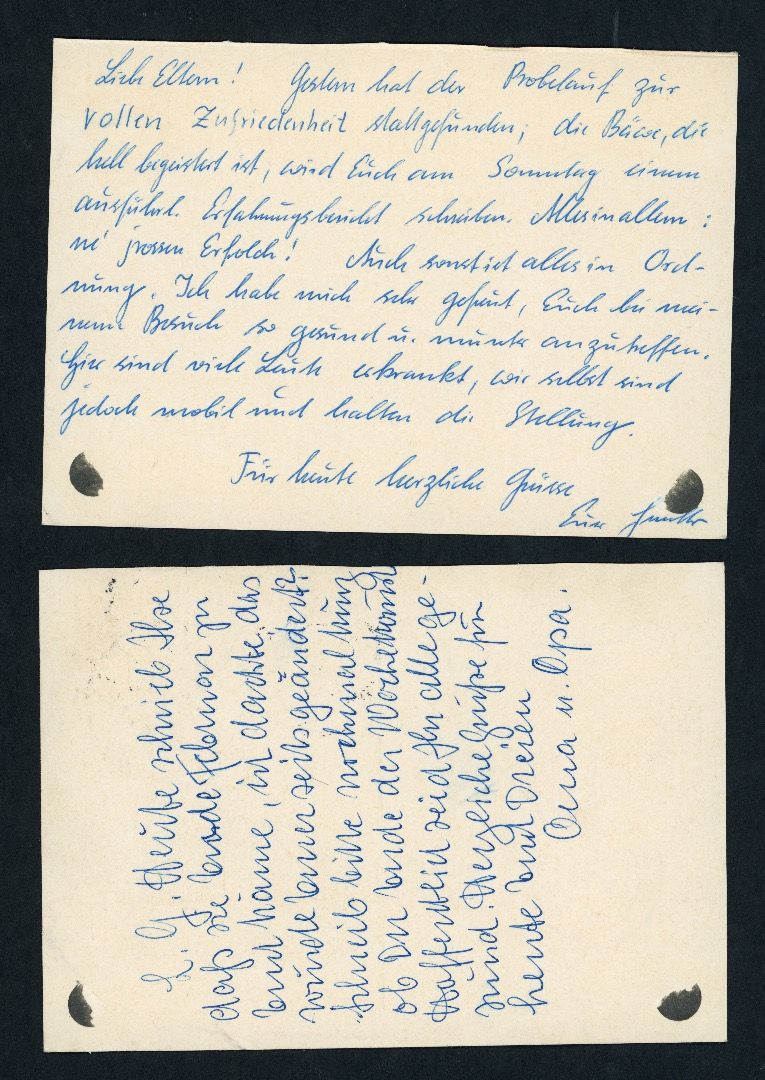 Liebe Eltern! Gestern hat der Probelauf zur
vollen Zufriedenheit stattgefunden; die, die
hell begeistert ist, wird Euch am Sonntag einen
ausführl. Erfahrungsbericht schreiben. Alles in allem:
ne' jrossen Erfolch! Auch sonst ist alles in Ord-
nung. Ich habe mich sehr gefreut, Euch bei mei-
nem Besuch so gesund u. munter anzutreffen.
Hier sind viele Leute erkrankt, wir selbst sind
jedoch mobil und halten die Stellung.
Für heute herzliche Grüsse
Euer
L. G. Heute schrieb Ilse
daß sie Ende Februar zu
Euch käme, ich dachte, das
würde Eurerseits geändert?
Schreib bitte nochmal kurz
ob Du Ende der Woche kommst
Hoffentlich seid Ihr alle ge-
sund. Herzliche Grüße für
heute Euch Dreien
Oma u. Opa.